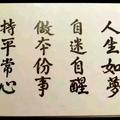 人生如夢
自迷自醒
做本份事
持平常心